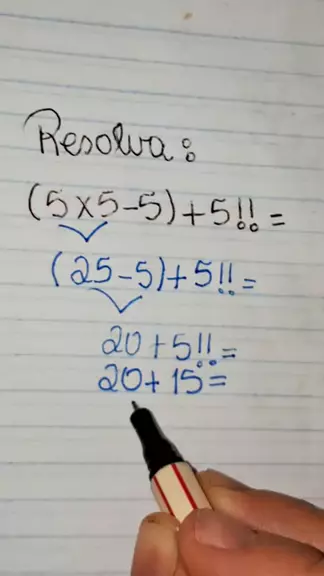 Resolva:
(5x5-5)+5!!=
(25-5)+5!!=
20+5!!=
20+15=